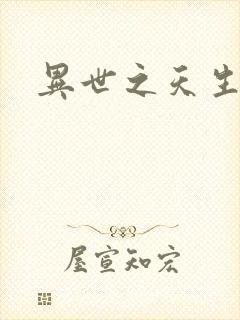 異世之天生
屋宣知宏